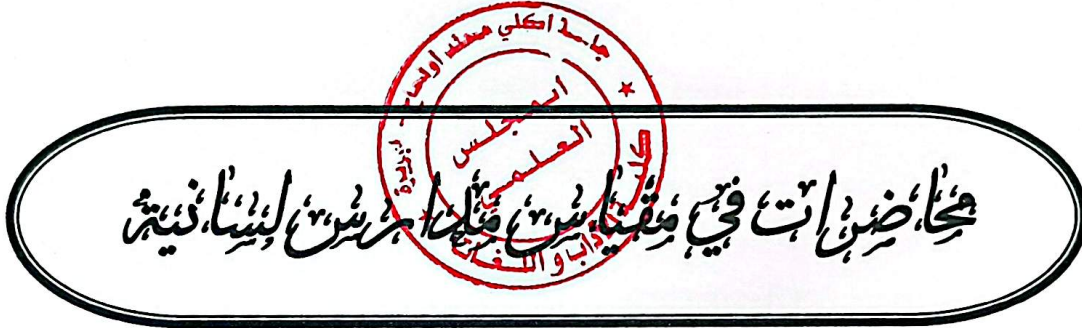 جامعة اكلي محند اولحاج - البويرة
المجلس
العلمي
كلية الآداب واللغات
محاضرات في مقياس مدارس لسانية